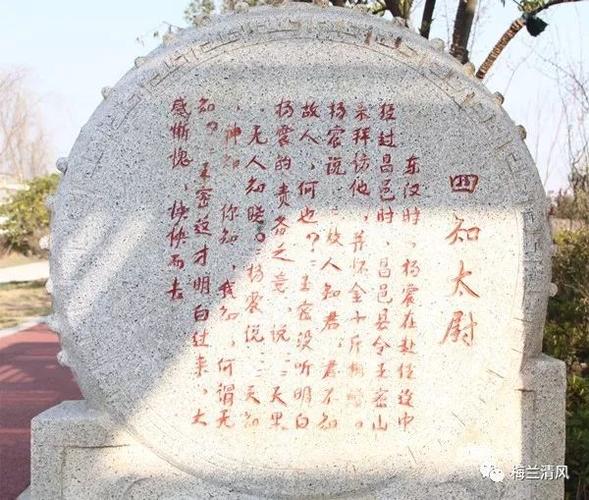 四知太尉
东汉时,杨震在赴任途中
经过昌邑时,昌邑县令王密山
来拜访他,并怀金十斤相赠。
杨震说:“故人知君,君不知
故人,何也?”王密没听明白
杨震的责备之意,说:“天黑
,无人知晓。”杨震说:“天知
,神知,你知,我知,何谓无
知?”王密这才明白过来,大
感惭愧,怏怏而去
梅兰清风